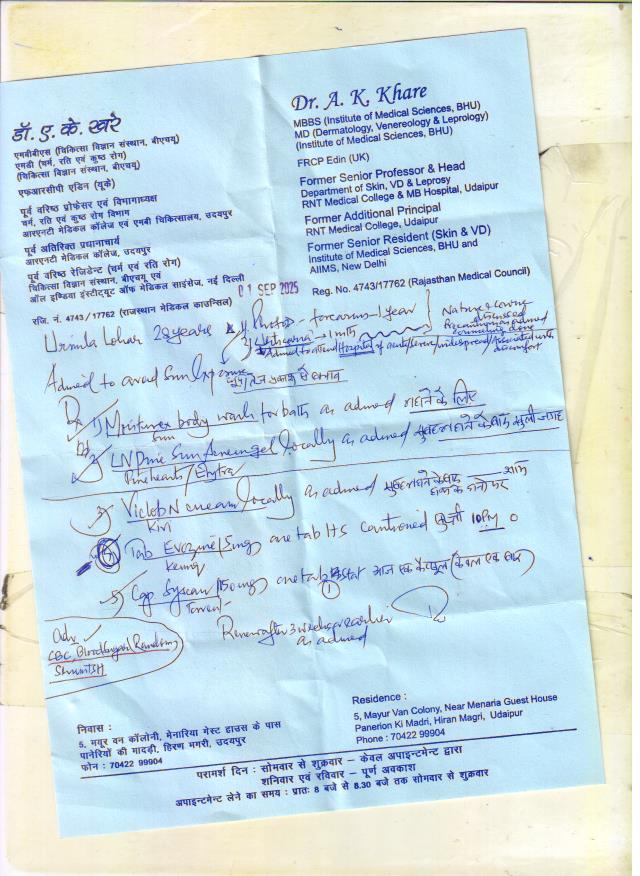 डॉ. ए. के. खरे
एमबीबीएस (चिकित्सा विज्ञान संस्थान, बीएचयू)
एमडी (चर्म, रति एवं कुष्ठ रोग)
(चिकित्सा विज्ञान संस्थान, बीएचयू)
एफआरसीपी एडिन (यूके)
पूर्व वरिष्ठ प्रोफेसर एवं विभागाध्यक्ष
चर्म, रति एवं कुष्ठ रोग विभाग
आरएनटी मेडिकल कॉलेज एवं एमबी चिकित्सालय, उदयपुर
पूर्व अतिरिक्त प्रधानाचार्य
आरएनटी मेडिकल कॉलेज, उदयपुर
पूर्व वरिष्ठ रेजिडेन्ट (चर्म एवं रति रोग)
चिकित्सा विज्ञान संस्थान, बीएचयू एवं
ऑल इण्डिया इंस्टीट्यूट ऑफ मेडिकल साइंसेज, नई दिल्ली
रजि. नं. 4743/17762 (राजस्थान मेडिकल काउन्सिल)
Dr. A. K. Khare
MBBS (Institute of Medical Sciences, BHU)
MD (Dermatology, Venereology & Leprology)
(Institute of Medical Sciences, BHU)
FRCP Edin (UK)
Former Senior Professor & Head
Department of Skin, VD & Leprosy
RNT Medical College & MB Hospital, Udaipur
Former Additional Principal
RNT Medical College, Udaipur
Former Senior Resident (Skin & VD)
Institute of Medical Sciences, BHU and
AIIMS, New Delhi
Reg. No. 4743/17762 (Rajasthan Medical Council)
01 SEP 2025
Urmila Lohar 28 years
forearms - 1 year
Nature & course
discussed
counselling done
Hospital if acute/severe/widespread/Associated with
discomfort
Advised to avoid Sun Exposure
1) body wash for bath as advised नहाने के लिए
Sun
2) locally as advised सुबह नहाने के बाद खुली जगह
3) cream locally as advised सुबह नहाने के बाद शाम
4) Tab 5mg one tab HS continued 10 PM
5) Cap 150mg one tab stat आज एक कैप्सूल (केवल एक बार)
Torrent
Review after 3 weeks or earlier
as advised
Adv
CBC, Blood Sugar Random
निवास :
5, मयूर वन कॉलोनी, मेनारिया गेस्ट हाउस के पास
पानेरियों की मादड़ी, हिरण मगरी, उदयपुर
फोन : 70422 99904
Residence :
5, Mayur Van Colony, Near Menaria Guest House
Panerion Ki Madri, Hiran Magri, Udaipur
Phone : 70422 99904
परामर्श दिन : सोमवार से शुक्रवार – केवल अपाइन्टमेन्ट द्वारा
शनिवार एवं रविवार – पूर्ण अवकाश
अपाइन्टमेन्ट लेने का समय : प्रातः 8 बजे से 8.30 बजे तक सोमवार से शुक्रवार